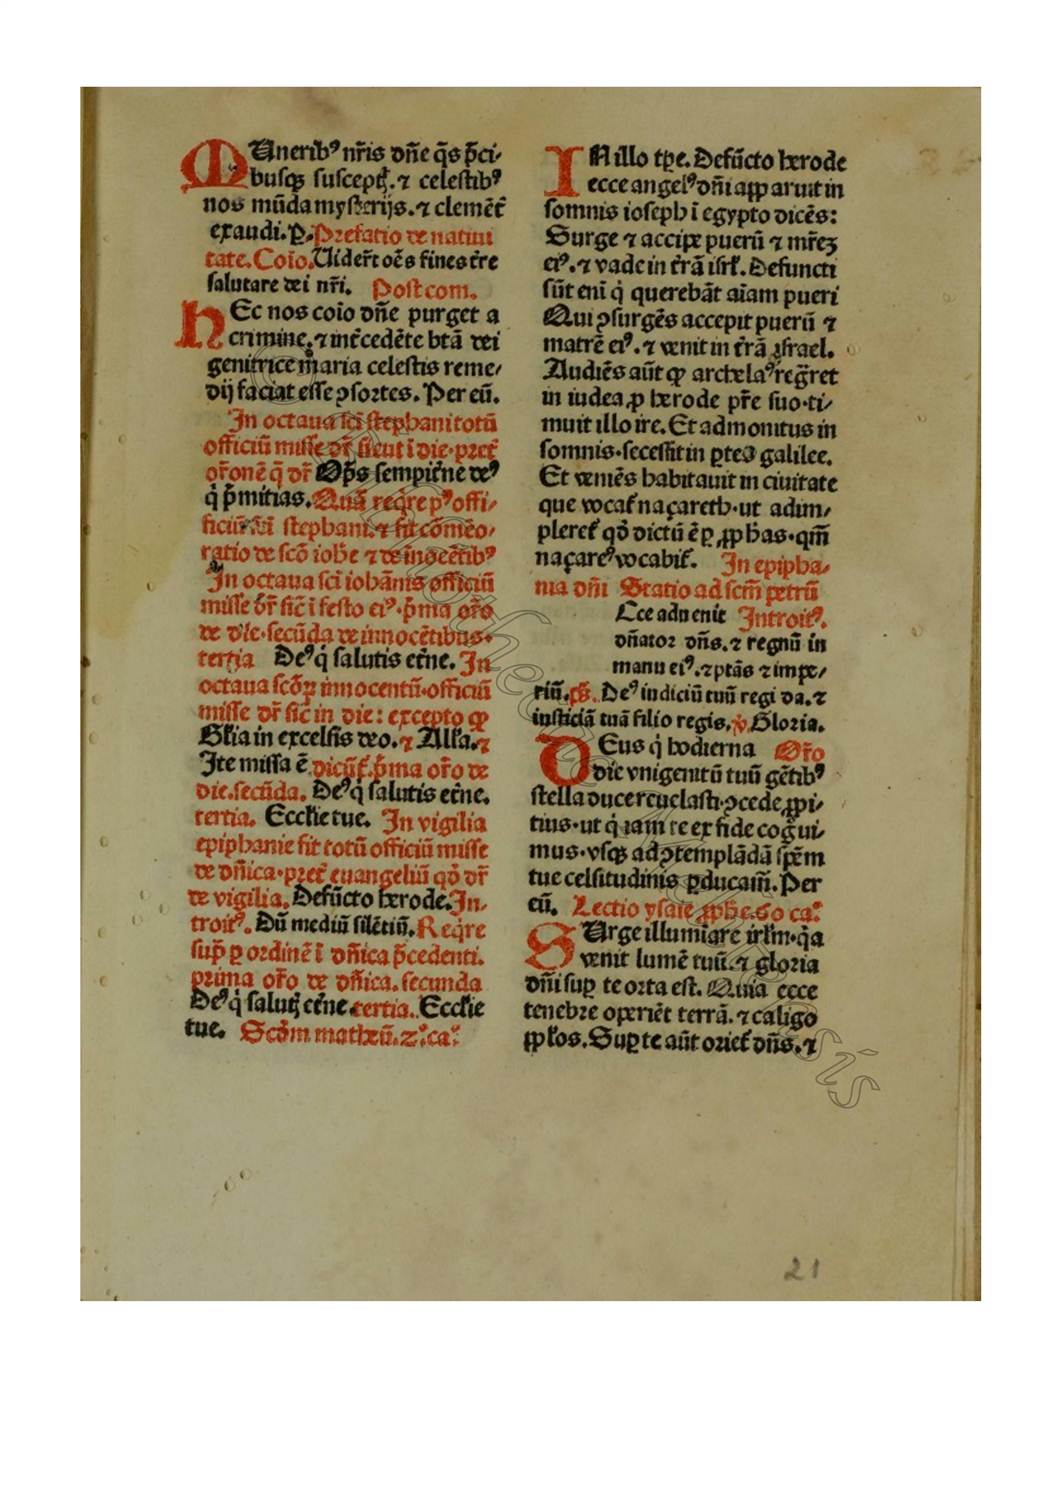 MUneribꝰ nr̄is dn̄e q̄s p̄ci-
busqꝫ susceptꝭ.⁊ celestibꝰ
nos mūda mysterijs.⁊ clemēt̄
exaudi. ꝑ. Prefatio de natiui
tate. Coīo. Uider̄t oēs fines t̄re
salutare dei nr̄i. Post com.
HEc nos coīo dn̄e purget a
crimine.⁊ int̄cedēte btā dei
genitrice maria celestis reme-
dij faciat esse ꝯsortes. Per eū.
In octaua sc̄i stephani totū
officiū misse dr̄ sicut ī die·pret̄
or̄onē q̄ dr̄ Op̄s sempit̄ne deꝰ
q̇ p̄mitias. Quā reqͥre pꝰ offi-
ficiū sc̄i stephani.⁊ fit cōmēo-
ratio de scō ioh̄e ⁊ de inocētibꝰ
In octaua sc̄i ioh̄anis officiū
misse dr̄ sic̄ ī festo eiꝰ·p̄ma or̄o
de die·secūda de innocētibus·
tertia Deꝰ q̇ salutis et̄ne. In
octaua scōꝝ innocentū·officiū
misse dr̄ sic̄ in die: excepto ꝙ
Gl̄ia in excelsis deo.⁊ All̄a.⁊
Ite missa ē. dicūt̄.p̄ma or̄o de
die.secūda. Deꝰ q̇ salutis et̄ne.
tertia. Eccl̄ie tue. In vigilia
epiphanie fit totū officiū misse
de dn̄ica·pret̄ euangeliū qd̄ dr̄
de vigilia. Defūcto herode. In-
troitꝰ. Dū mediū silētiū. Reqͥre
sup̄ ꝑ ordinē ī dn̄ica p̄cedenti.
prima or̄o de dn̄ica. secunda
Deꝰ q̇ salutꝭ et̄ne.tertia. Eccl̄ie
tue. Scd̄m matheū.2.ͦ ca.ͦ
IN illo tp̄e. Defūcto herode
ecce angelꝰ dn̄i apparuit in
somnis ioseph ī egypto dicēs:
Surge ⁊ accipe puerū ⁊ mr̄eꝫ
eiꝰ.⁊ vade in t̄rā isrl̄. Defuncti
sūt enī q̇ querebāt aīam pueri
Qui ꝯsurgēs accepit puerū ⁊
matrē eiꝰ.⁊ venit in t̄rā israel.
Audiēs aūt ꝙ archelaꝰ regͣret
in iudea ꝓ herode pr̄e suo·ti-
muit illo ire. Et admonitus in
somnis·secessit in ꝑtes galilee.
Et veniēs habitauit in ciuitate
que vocat̄ naçareth·ut adim-
pleret̄ qd̄ dictū ē ꝑ ꝓph̄as·qm̄
naçareꝰ vocabit̄. In epipha-
nia dn̄i Statio ad scm̄ petrū
Ecce aduenit Introitꝰ.
dn̄ator dn̄s.⁊ regnū in
manu eiꝰ.⁊ ptās ⁊ impe-
riū.ps̄. Deꝰ iudiciū tuū regi da.⁊
iusticiā tuā filio regis.℣. Gloria.
DEus q̇ hodierna Or̄o
die vnigenitū tuū gētibꝰ
stella duce reuelasti·ꝯcede ꝓpi-
tius·ut q̇ iam te ex fide cogͦui-
mus·vsqꝫ ad ꝯtemplādā spēm
tue celsitudinis ꝑducam̄. Per
eū. Lectio ysaie ꝓph̄e.60 ca.ͦ
SUrge illumiare irl̄m·qͥa
venit lumē tuū.⁊ gloria
dn̄i suꝑ te orta est. Quia ecce
tenebre operiēt terrā.⁊ caligo
ppl̄os. Suꝑ te aūt oriet̄ dn̄s.⁊
21